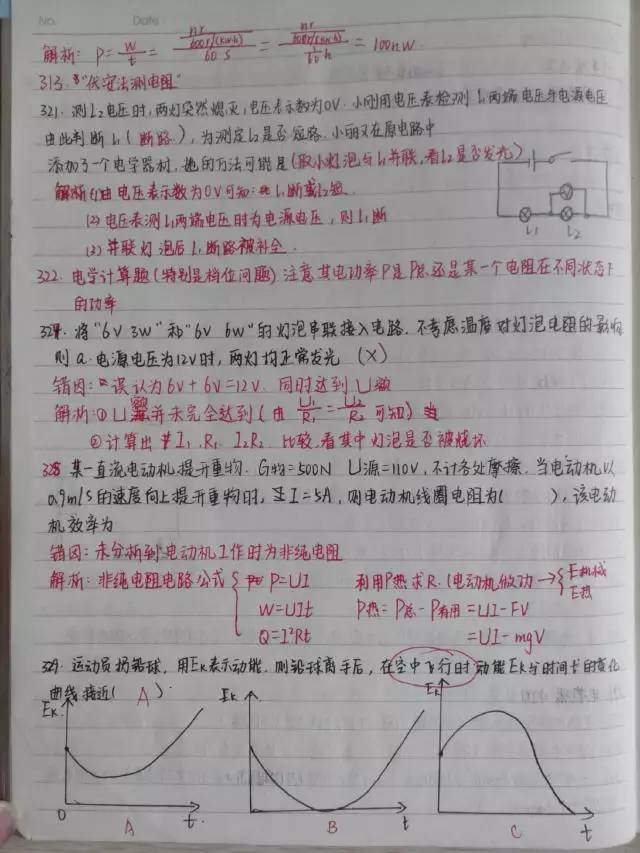 No. Date
解析: P=W/t= (nr/600r/(kw·h))/60s = (nr/600r/(kw·h))/(1/60 h) =100nW.
313. "伏安法测电阻"
321. 测L2电压时,两灯突然熄灭,电压表示数为0V. 小刚用电压表检测L1两端电压与电源电压
由此判断L1(断路),为测定L2是否短路,小丽又在原电路中
添加了一个电学器材,她的方法可能是(取小灯泡与L1并联,看L2是否发光)
解析(1)由电压表示数为0V可知: L1断或L2短.
(2)电压表测L1两端电压时为电源电压,则L1断
(3)并联灯泡后L1断路被补全.
L1 L2
322. 电学计算题(特别是档位问题)注意其电功率P是P总还是某一个电阻在不同状态下
的功率
324. 将"6V 3W"和"6V 6W"的灯泡串联接入电路.不考虑温度对灯泡电阻的影响
则 a.电源电压为12V时,两灯均正常发光 (X)
错因: 误认为6V+6V=12V.同时达到U额
解析:①U额并未完全达到(由U1/R1=U2/R2可知)
②计算出I1.R1 I2R2 比较.看其中灯泡是否被烧坏
325 某一直流电动机提升重物. G物=500N U源=110V,不计各处摩擦.当电动机以
0.9m/s的速度向上提升重物时, I=5A,则电动机线圈电阻为( ),该电动
机效率为
错因:未分析到电动机工作时为非纯电阻
解析:非纯电阻电路公式 P=UI 利用P热求R.(电动机做功→ E机械
E热
W=UIt P热=P总-P有用=UI-FV
Q=I²Rt =UI-mgV
329. 运动员掷铅球,用Ek表示动能.则铅球离手后,在空中飞行时动能Ek与时间t的变化
曲线接近( A ):
Ek Ek Ek
0 t t t
A B C